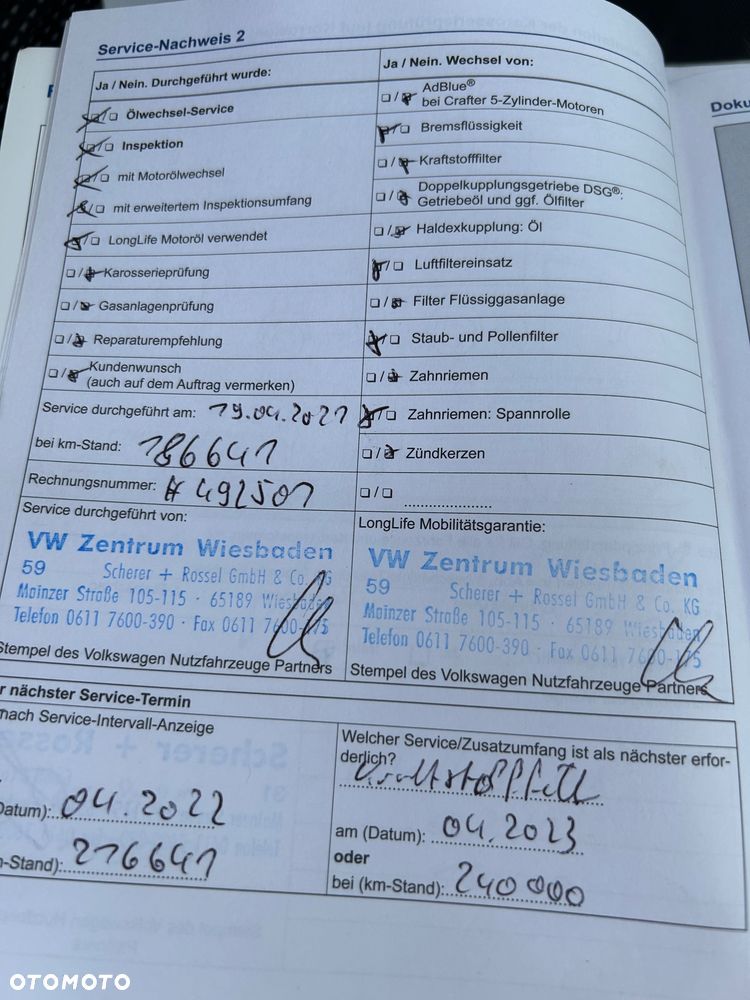 Service-Nachweis 2
Ja / Nein. Durchgeführt wurde:
Ölwechsel-Service
Inspektion
mit Motorölwechsel
mit erweitertem Inspektionsumfang
LongLife Motoröl verwendet
Karosserieprüfung
Gasanlagenprüfung
Reparaturempfehlung
Kundenwunsch
(auch auf dem Auftrag vermerken)
Service durchgeführt am: 19.04.2021
bei km-Stand: 186641
Rechnungsnummer: # 492501
Service durchgeführt von:
VW Zentrum Wiesbaden
59 Scherer + Rossel GmbH & Co. KG
Mainzer Straße 105-115 · 65189 Wiesbaden
Telefon 0611 7600-390 · Fax 0611 7600-175
Stempel des Volkswagen Nutzfahrzeuge Partners
Ja / Nein. Wechsel von:
AdBlue®
bei Crafter 5-Zylinder-Motoren
Bremsflüssigkeit
Kraftstofffilter
Doppelkupplungsgetriebe DSG®:
Getriebeöl und ggf. Ölfilter
Haldexkupplung: Öl
Luftfiltereinsatz
Filter Flüssiggasanlage
Staub- und Pollenfilter
Zahnriemen
Zahnriemen: Spannrolle
Zündkerzen
LongLife Mobilitätsgarantie:
VW Zentrum Wiesbaden
59 Scherer + Rossel GmbH & Co. KG
Mainzer Straße 105-115 · 65189 Wiesbaden
Telefon 0611 7600-390 · Fax 0611 7600-175
Stempel des Volkswagen Nutzfahrzeuge Partners
r nächster Service-Termin
nach Service-Intervall-Anzeige
Datum): 04.2022
-Stand): 216641
Welcher Service/Zusatzumfang ist als nächster erfor-
derlich?
am (Datum): 04.2023
oder
bei (km-Stand): 240000
Doku
OTOMOTO